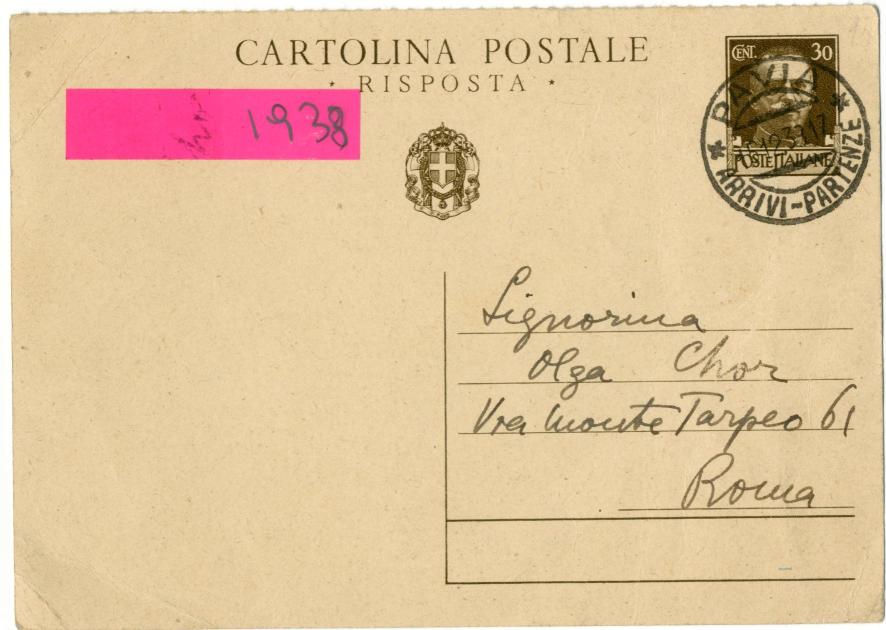 CARTOLINA POSTALE
* RISPOSTA *
1938
CENT. 30
POSTE ITALIANE
* PAVIA *
ARRIVI-PARTENZE
Signorina
Olga Chor
Via Monte Tarpeo 61
Roma